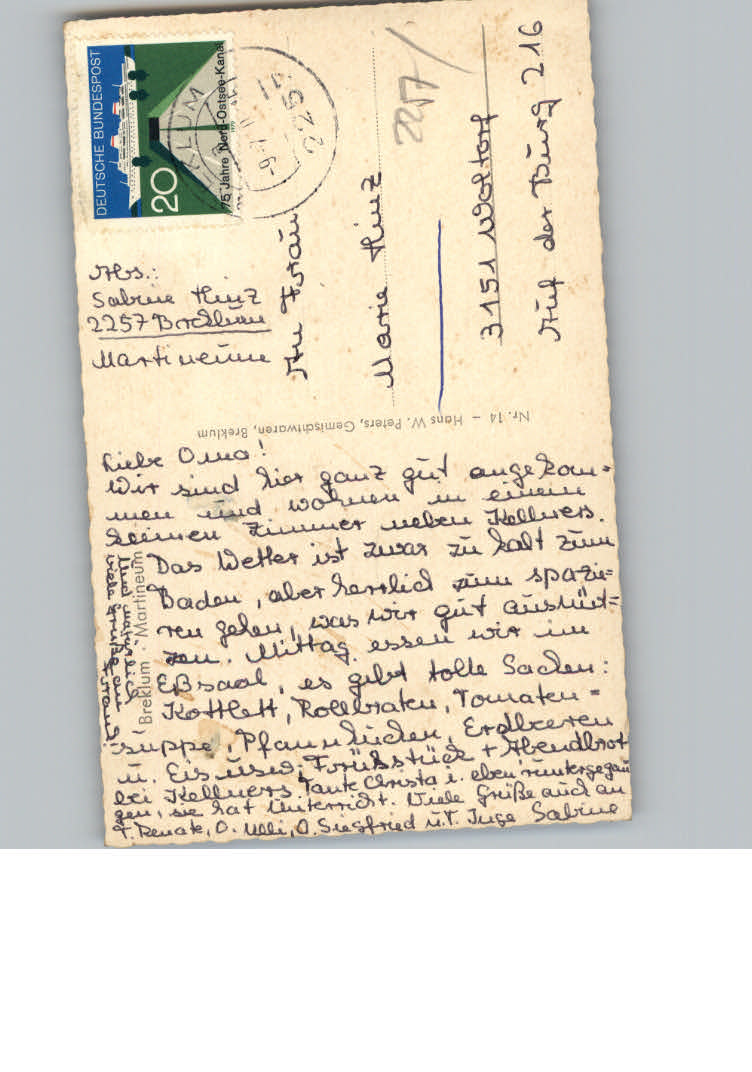 DEUTSCHE BUNDESPOST
20
75 Jahre Nord-Ostsee-Kanal
2257
Abs.:
Sabine Hinz
2257 Breklum
Martineum
An Frau
Marie Hinz
3151 Woltorf
Auf der Burg 216
Nr. 14 – Hans W. Peters, Gemischtwaren, Breklum
Breklum · Martineum
Liebe Oma!
Wir sind hier ganz gut angekom=
men und wohnen in einem
kleinen Zimmer neben Kellners.
Das Wetter ist zwar zu kalt zum
Baden, aber herrlich zum spazie=
ren gehen, was wir gut ausnüt=
zen. Mittag essen wir im
Eßsaal, es gibt tolle Sachen:
Kottlett, Rollbraten, Tomaten=
suppe, Pfannkuchen, Erdbeeren
u. Eis usw. Frühstück + Abendbrot
bei Kellners. Tante Christa i. eben runtergegan
gen, sie hat Unterricht. Viele Grüße auch an
T. Renate, O. Ulli, O. Siegfried u. T. Inge Sabine
Und natürlich
viele Grüße an